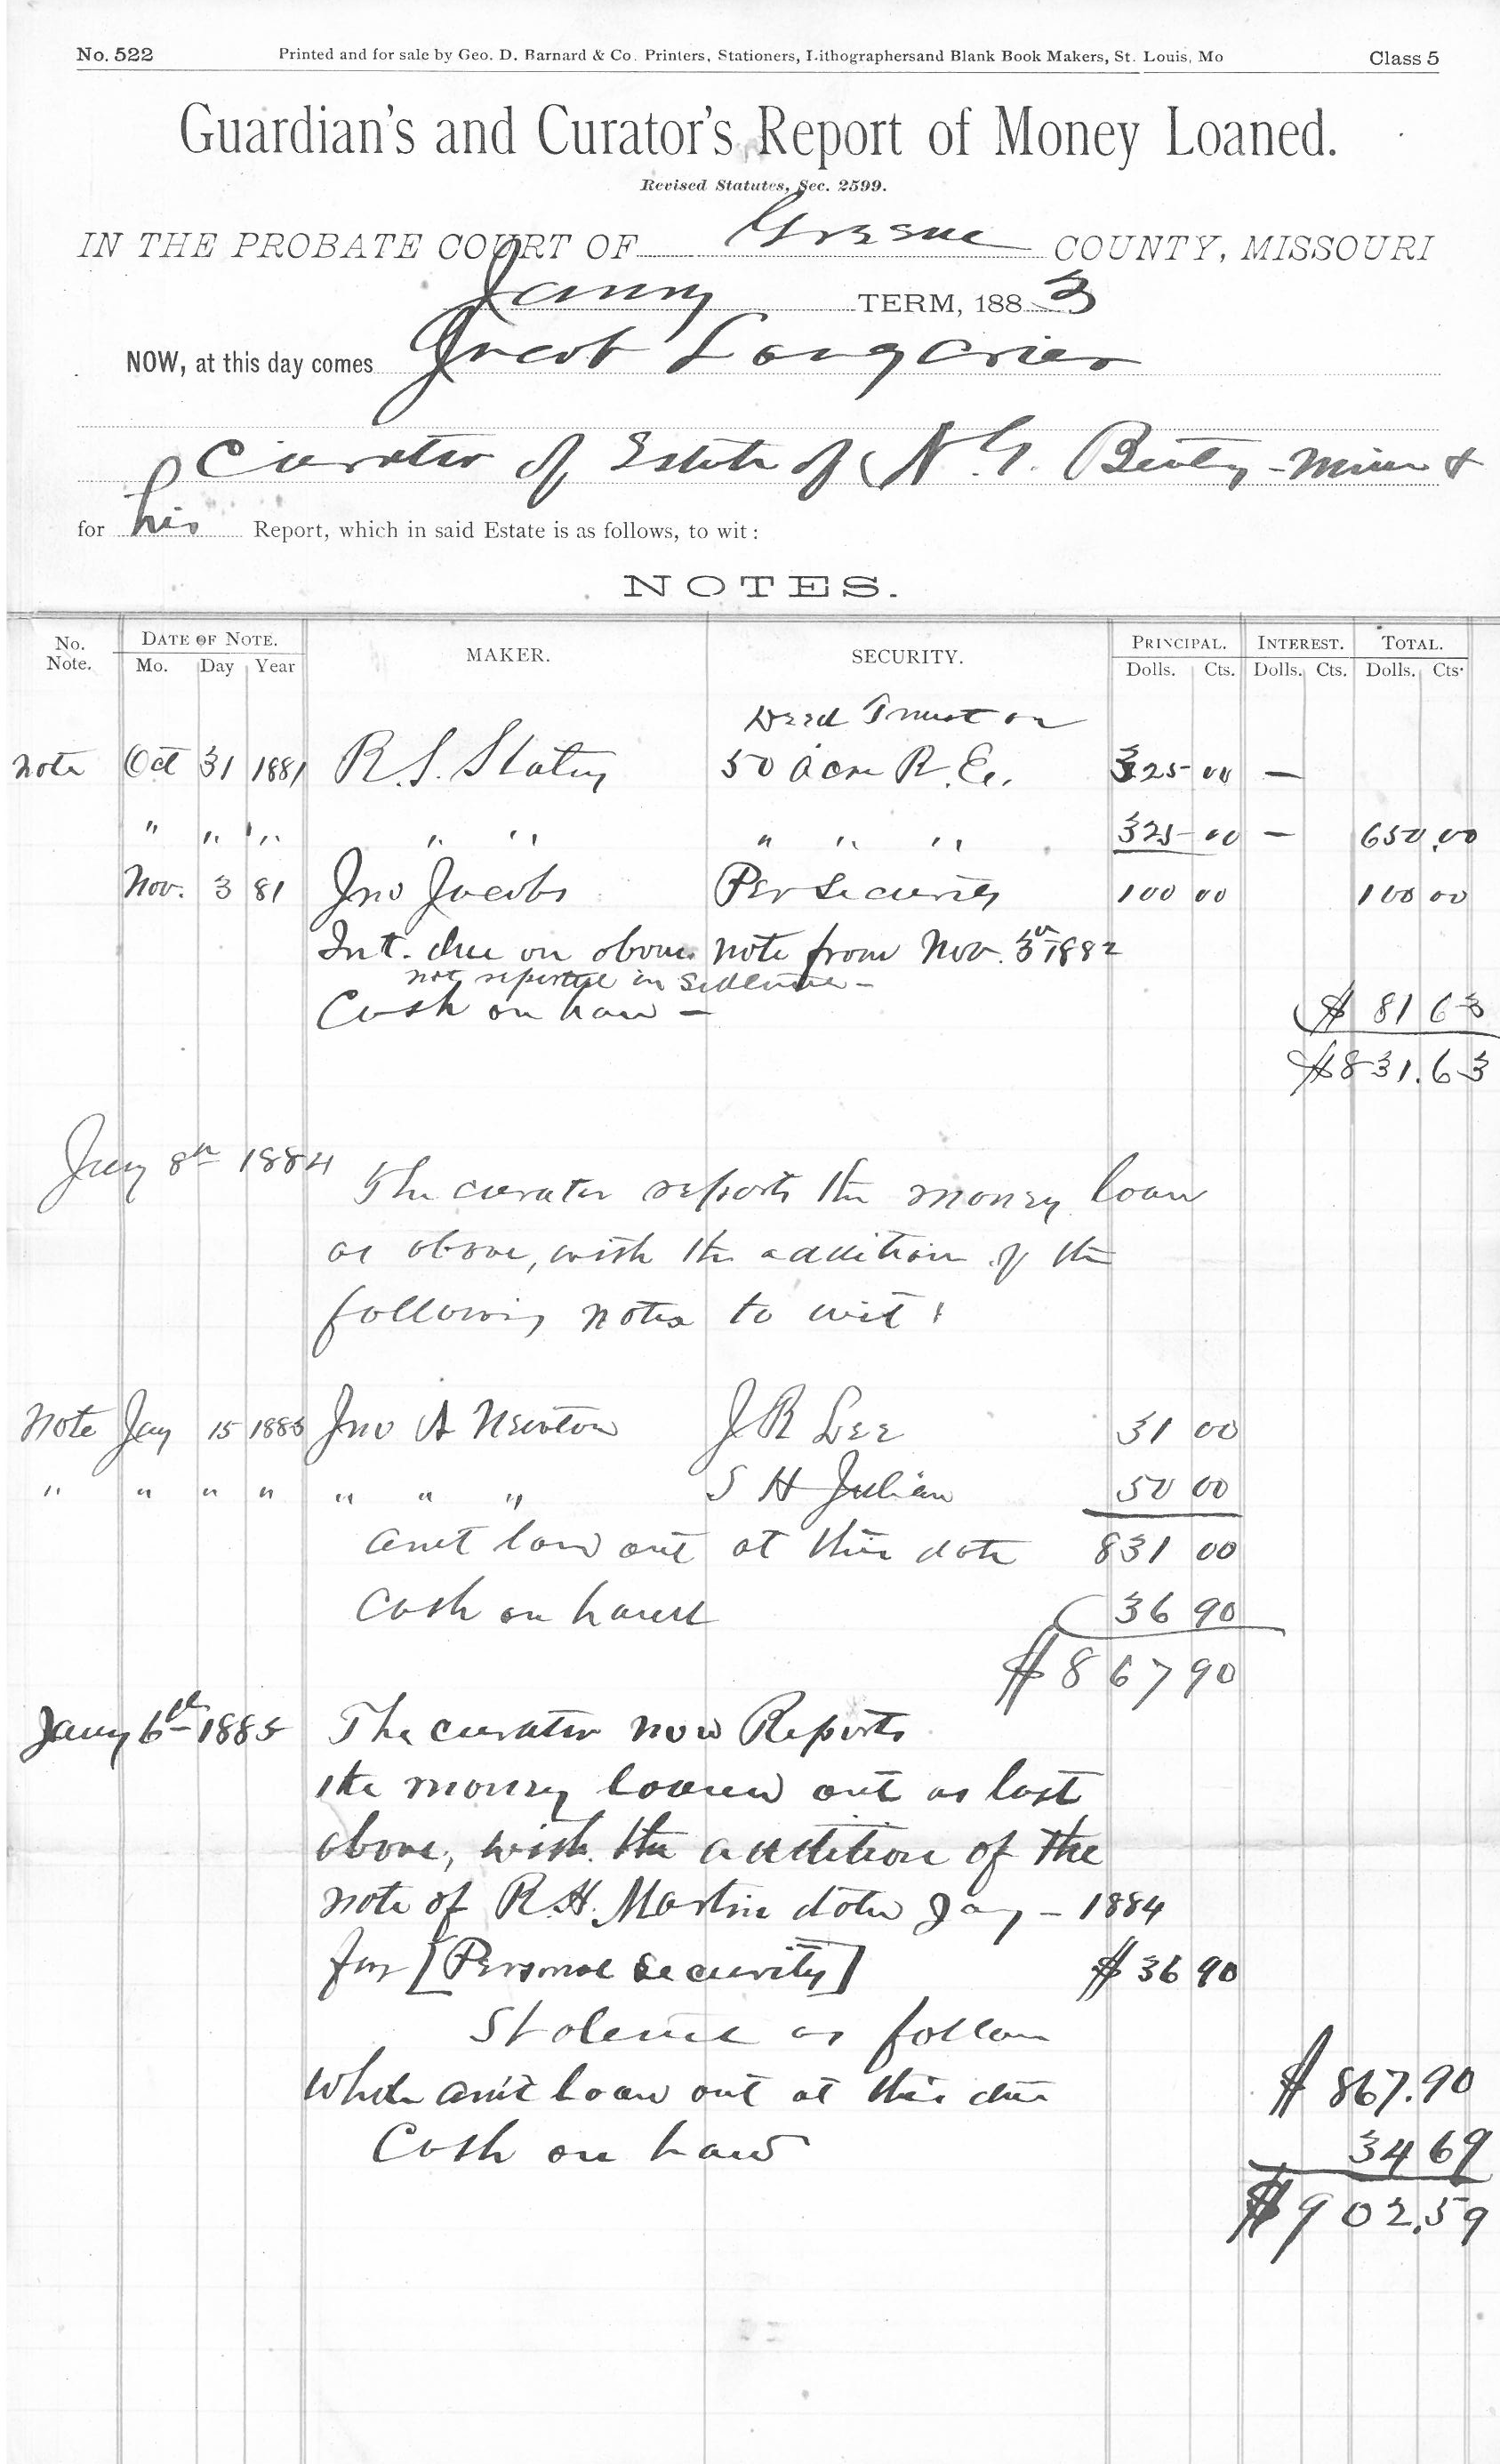 No. 522 Printed and for sale by Geo. D. Barnard & Co. Printers, Stationers, Lithographersand Blank Book Makers, St. Louis, Mo Class 5
Guardian's and Curator's Report of Money Loaned.
Revised Statutes, Sec. 2599.
IN THE PROBATE COURT OF Greene COUNTY, MISSOURI
TERM, 1883
NOW, at this day comes Jacob
Curator of Estate of N. G.
for his Report, which in said Estate is as follows, to wit:
NOTES.
No. Note. DATE OF NOTE. Mo. Day Year MAKER. SECURITY. PRINCIPAL. Dolls. Cts. INTEREST. Dolls. Cts. TOTAL. Dolls. Cts.
Deed Trust on
Note Oct 31 1881 R. S. 50 acre R. E. 325 00 —
" " " " " " " " 325 00 — 650.00
Nov. 3 81 Jno Jacobs Per Security 100 00 100 00
Int. due on above note from Nov. 3rd 1882
not reported in
Cash on — $ 81 63
$831.63
8th 1884
The curator reports the money loan
as above, with the addition of the
following notes to wit:
Note Jay 15 1883 Jno A Newton J R Lee 31 00
" " " " " " " S H Julian 50 00
amt out at this date 831 00
Cash on hand 36 90
$867 90
Jany 6th 1885 The curator now Reports
the money loaned out as last
above, with the addition of the
note of R. H. Martin 1884
for [Personal Security] $36 90
as follow
Whole amt loan out at this $867.90
Cash on hand 34 69
$902.59